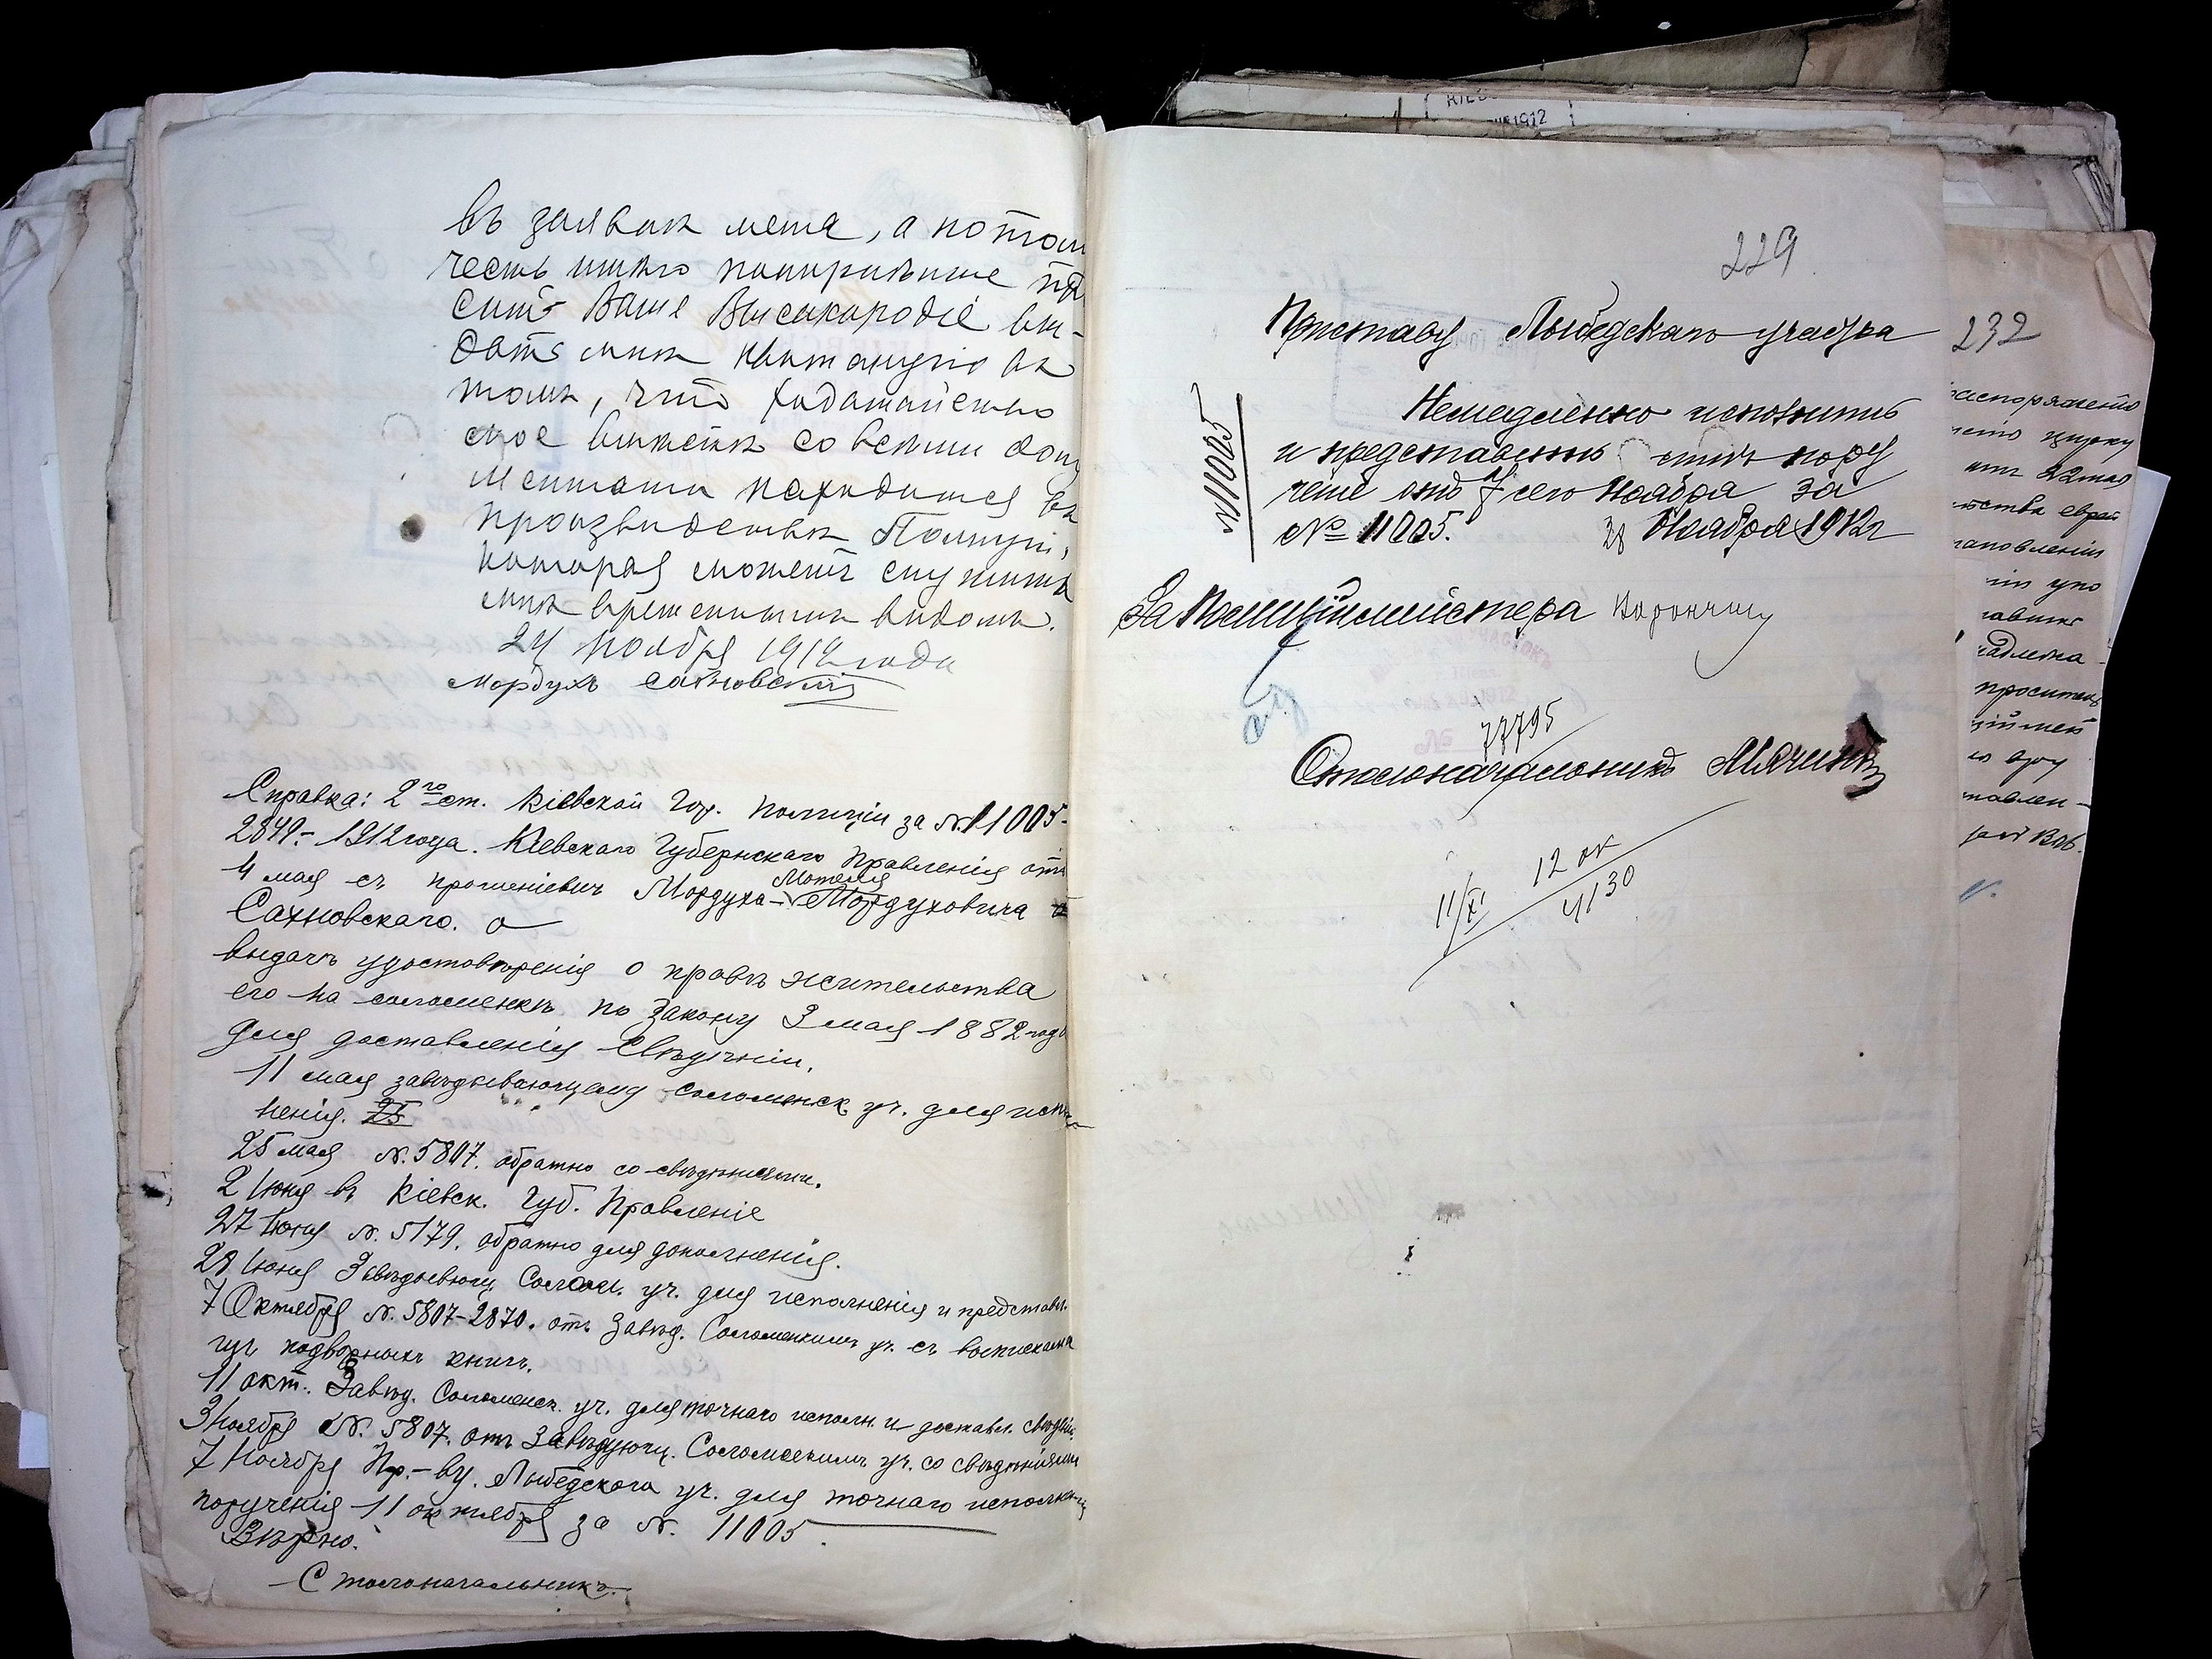 въ заявак меня, а потом
честь имѣю покорнѣише про
сить Ваше Высокородіе вы-
дать мнѣ квитанцію въ
томъ, что ходатайство
мое вмѣстѣ со всѣми доку
ментами находится въ
производствѣ Полиціи,
которая можетъ служить
мнѣ временнымъ видомъ.
24 ноября 1912 года
Мордухъ Сахновскій
Справка: 2го ст. Кіевской Гор. Полиціи за №11005-
2849- 1912 года. Кіевскаго Губернскаго Правленія отъ
4 мая съ прошеніемъ Мордуха-
Мотеля
Мордуховича
Сахновскаго. о
выдачѣ удостовѣренія о правѣ жительства
его на соломенкѣ по закону 3 мая 1882 года
для доставленія свѣдѣній.
11 мая завѣдывающему соломенск. уч. для испол
ненія. 25
25 мая №.5807. обратно со свѣдѣніями.
2 Іюня въ Кіевск. Губ. Правленіе
27 Іюня №. 5179. обратно для дополненія.
28 Іюня Завѣдывающ. Солом. уч. для исполненія и представл.
7 Октября №. 5807-2870. отъ Завѣд. Соломенкимъ уч. съ выписками
изъ подворныхъ книгъ.
11 окт. Завѣд. Соломенск. уч. для точнаго исполн. и доставл. свѣдѣн.
3 Ноября №. 5807. отъ Завѣдующ. Соломенкимъ уч. со свѣдѣніями
7 Ноября Пр.-ву. Лыбедскаго уч. для точнаго исполнен
порученія 11 октября за №. 11005.
Вѣрно.
Столоначальникъ.
229
Приставу Лыбедскаго участка
№11005
Немедленно исполнить
и представить симъ пору
ченіе отъ 7 сего ноября за
№ 11005. 28 Ноября 1912г
За Полиціймейстера
77795
Столоначальникъ Мячинъ
12 ок
11/XI 4130
1912
232
распоряженію
цирку
22 мая
евреи
тановленія
упо
просител
тавлен-